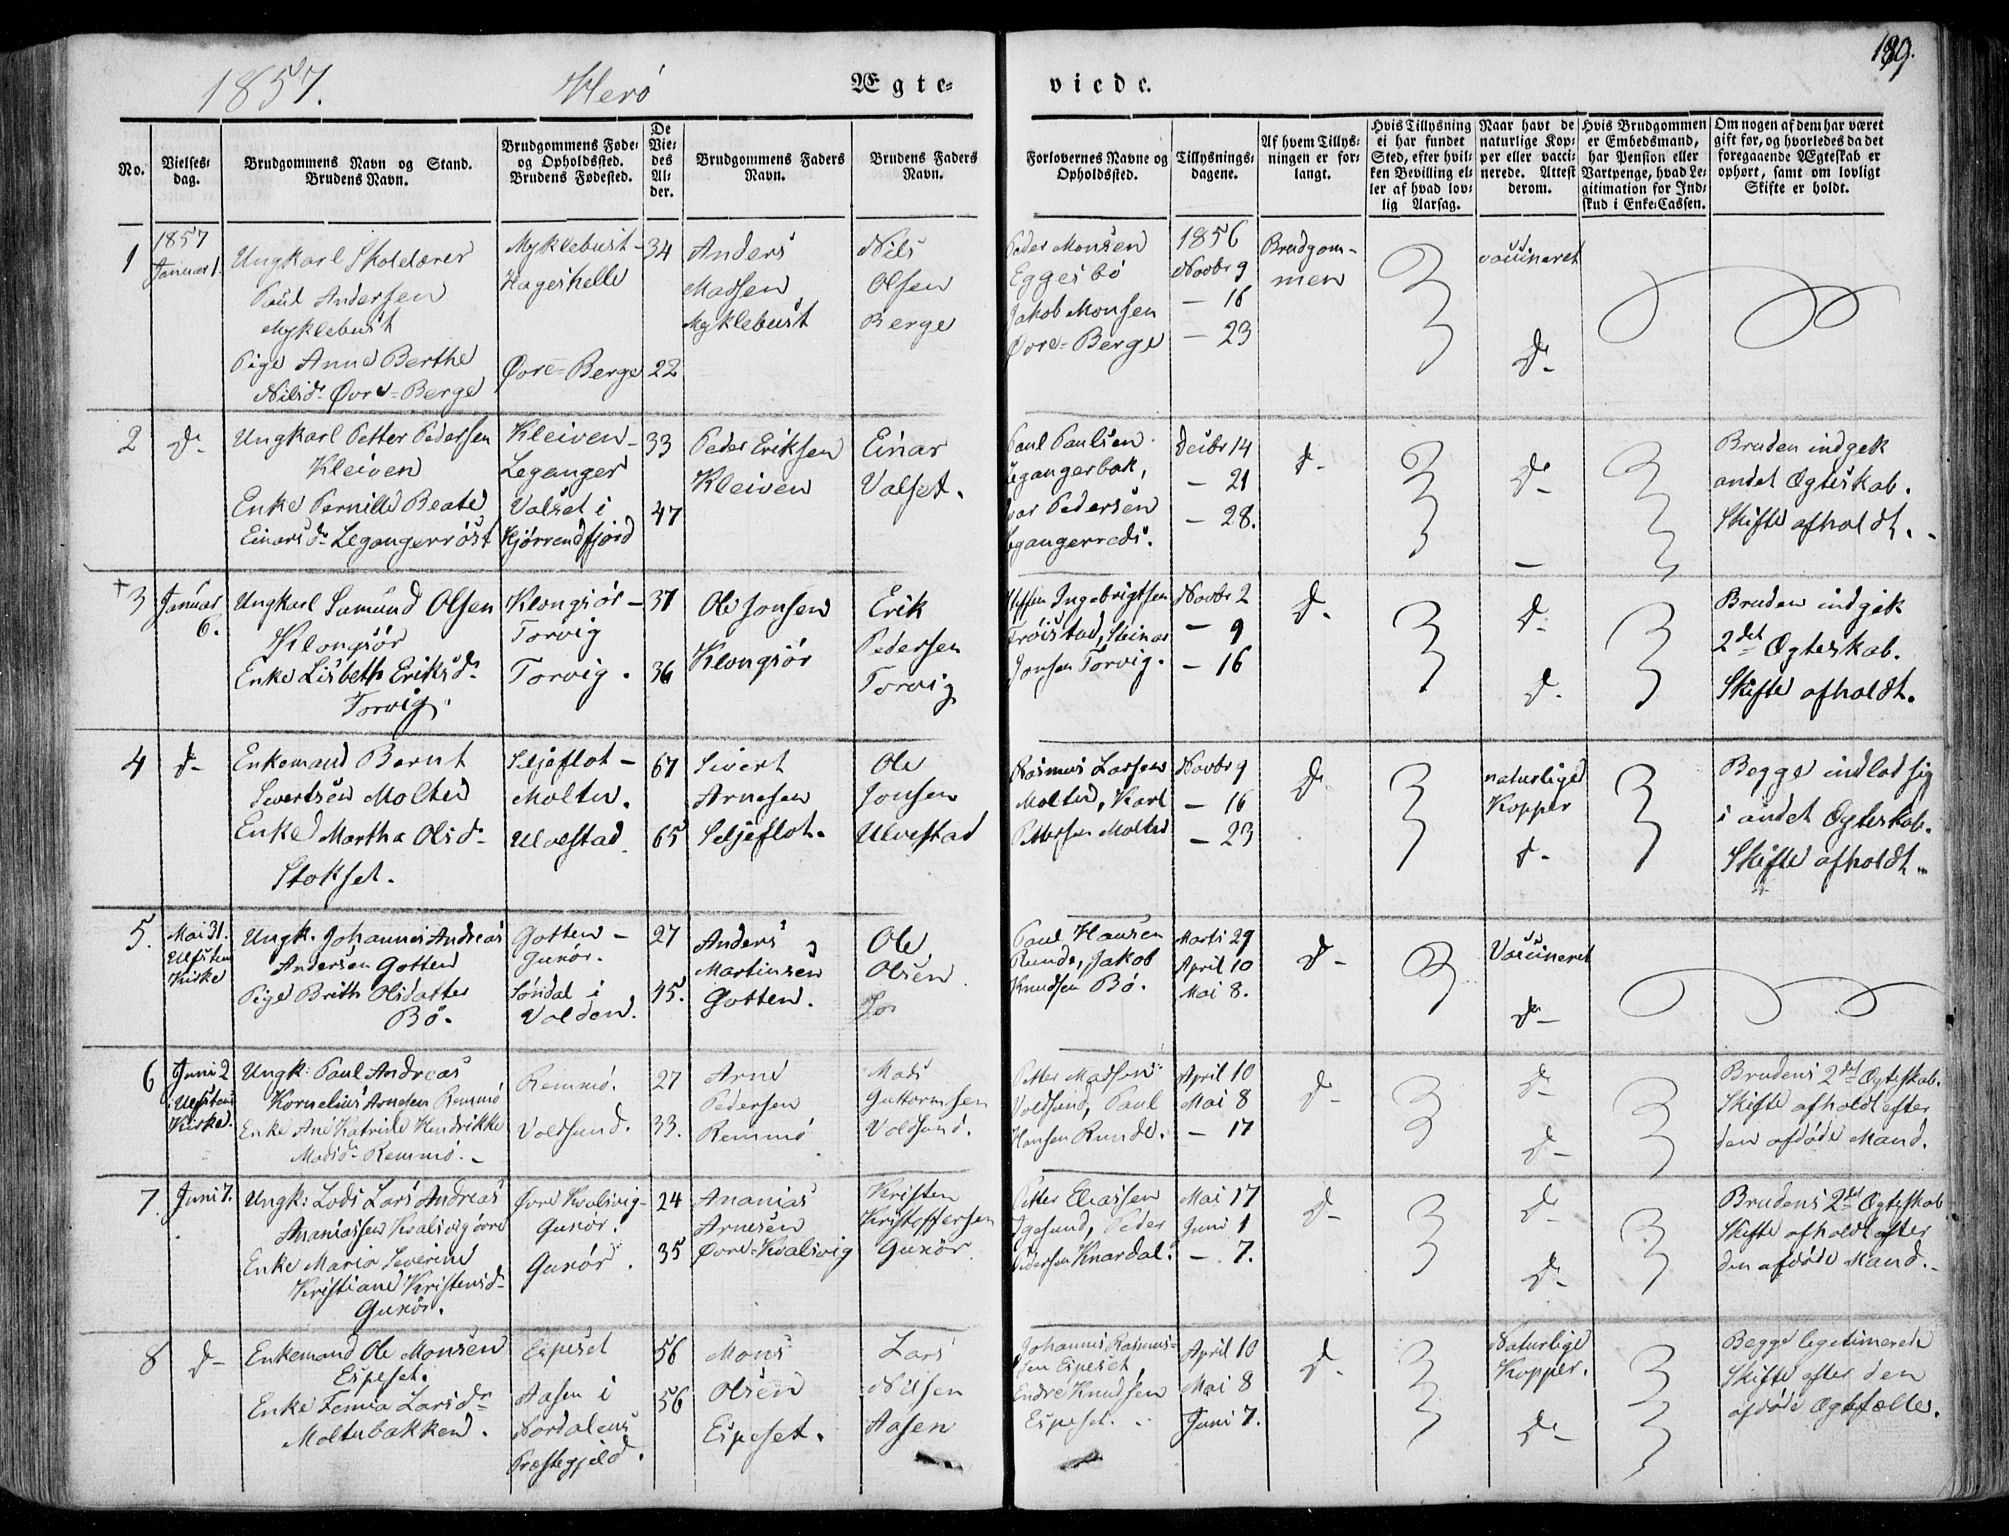 189.
1857. Herö Ægte- viede.
No.
Vielses-
dag.
Brudgommens Navn og Stand.
Brudens Navn.
Brudgommens Føde-
og Opholdssted.
Brudens Fødested.
De
Vie-
des
Al-
der.
Brudgommens Faders
Navn.
Brudens Faders
Navn.
Forlovernes Navne og
Opholdssted.
Tillysnings-
dagene.
Af hvem Tillys-
ningen er for-
langt.
Hvis Tillysning
ei har fundet
Sted, efter hvil-
ken Bevilling el-
ler af hvad lov-
lig Aarsag.
Naar havt de
naturlige Kop-
per eller vacci-
nerede. Attest
derom.
Hvis Brudgommen
er Embedsmand,
har Pension eller
Vartpenge, hvad Le-
gitimation for Ind-
skud i Enke-Cassen.
Om nogen af dem har været
gift før, og hvorledes da det
foregaaende Ægteskab er
ophørt, samt om lovligt
Skifte er holdt.
1
1857
Januar 1.
Ungkarl Skolelærer
Paul Andersen
Myklebust
Pige Anne Berthe
Nilsdr Øvre-Berge
Myklebust-
Hageskelle
Øvre-Berge
34
22
Anders
Madsen
Myklebust
Nils
Olsen
Berge
Peder Monsen
Eggesbö
Jakob Monsen
Øvre-Berge
1856
Novbr 9
- 16
- 23
Brudgom-
men
vaccineret
do
2
do
Ungkarl Petter Pedersen
Kleiven
Enke Pernille Beate
Einarsdr Legangerröst
Kleiven-
Leganger
Valset i
Hjörrendfjord
33
47
Peder Eriksen
Kleiven
Einar
Valset.
Paul Paulsen
Legangerbak,
Ivar Pedersen
Legangerreds.
Decbr 14
- 21
- 28.
do
do
-
Bruden indgek
andet Ægteskab.
Skifte afholdt.
+3
Januar
6.
Ungkarl Samund Olsen
Klongsör
Enke Lisbeth Eriksdr
Torvig.
Klongsör-
Torvig
Torvig.
37
36
Ole Jonsen
Klongsör
Erik
Pedersen
Torvig
Steffen Ingebrigtsen
Fröistad, Steinar
Jonsen Torvig.
Novbr 2
- 9
- 16
do
do
do
Bruden indgik
2det Ægteskab.
Skifte afholdt.
4
do
Enkemand Bernt
Sivertsen Molteu
Enke Martha Olsdr
Stokset.
Seljeflot-
Molteu.
Ulvestad
67
65
Sivert
Arnesen
Seljeflot.
Ole
Jonsen
Ulvestad
Rasmus Larsen
Molteu, Karl
Pettersen Molteu
Novbr 9
- 16
- 23
do
naturlige
Kopper
do
Begge indlod sig
i andet Ægteskab.
Skifte afholdt.
5.
Mai 31.
Ulfsten
Kirke
Ungk. Johannes Andreas
Andersen Gotten
Pige Brith Olsdatter
Bö.
Gotten-
Gurör.
Söndal i
Volden.
27
45.
Anders
Martinsen
Gotten.
Ole
Olsen
Paul Hansen
Runde, Jakob
Knudsen Bö.
Marts 29
April 10
Mai 8.
do
Vaccineret
do
6
Juni 2
i Ulfsten
Kirke.
Ungk: Paul Andreas
Kornelius Arnesen Remmö
Enke Ane Katrine Hendrikke
Madsdr Remmö.
Remmö.
Voldsund.
27
33.
Arne
Pedersen
Remmö
Mads
Guttormsen
Voldsund.
Petter Madsen
Voldsund, Paul
Hansen Runde.
April 10
Mai 8
- 17
do
do
do
Brudens 2det Ægteskab.
Skifte afholdt efter
den afdöde Mand.
7.
Juni 7.
Ungk: Lods Lars Andreas
Ananiassen Kvalsvig övre
Enke Maria Severine
Kristiane Kristensdr
Gurör.
Övre Kvalsvig-
Gurör.
Gurör.
24
35
Ananias
Arnesen
Øvre-Kvalsvig
Kristen
Kristoffersen
Gurör
Petter Eliassen
Igesund, Peder
Pedersen Knardal.
Mai 17
Juni 1
- 7.
do
do
do
Brudens 2det Ægteskab
Skifte afholdt efter
den afdöde Mand.
8
do
Enkemand Ole Monsen
Espeset.
Enke Femia Larsdr
Moltubakken.
Espeset
Aasen i
Nordalens
Præstegjeld.
56
56
Mons
Olsen
Espeset.
Lars
Nilsen
Aasen
Johannes Rasmus-
sen Espeset
Endre Knudsen
Espeset.
April 10
Mai 8
Juni 7.
do
Naturlige
Kopper.
do
Begge legitimerede
Skifte efter den
afdöde Ægtefælle.